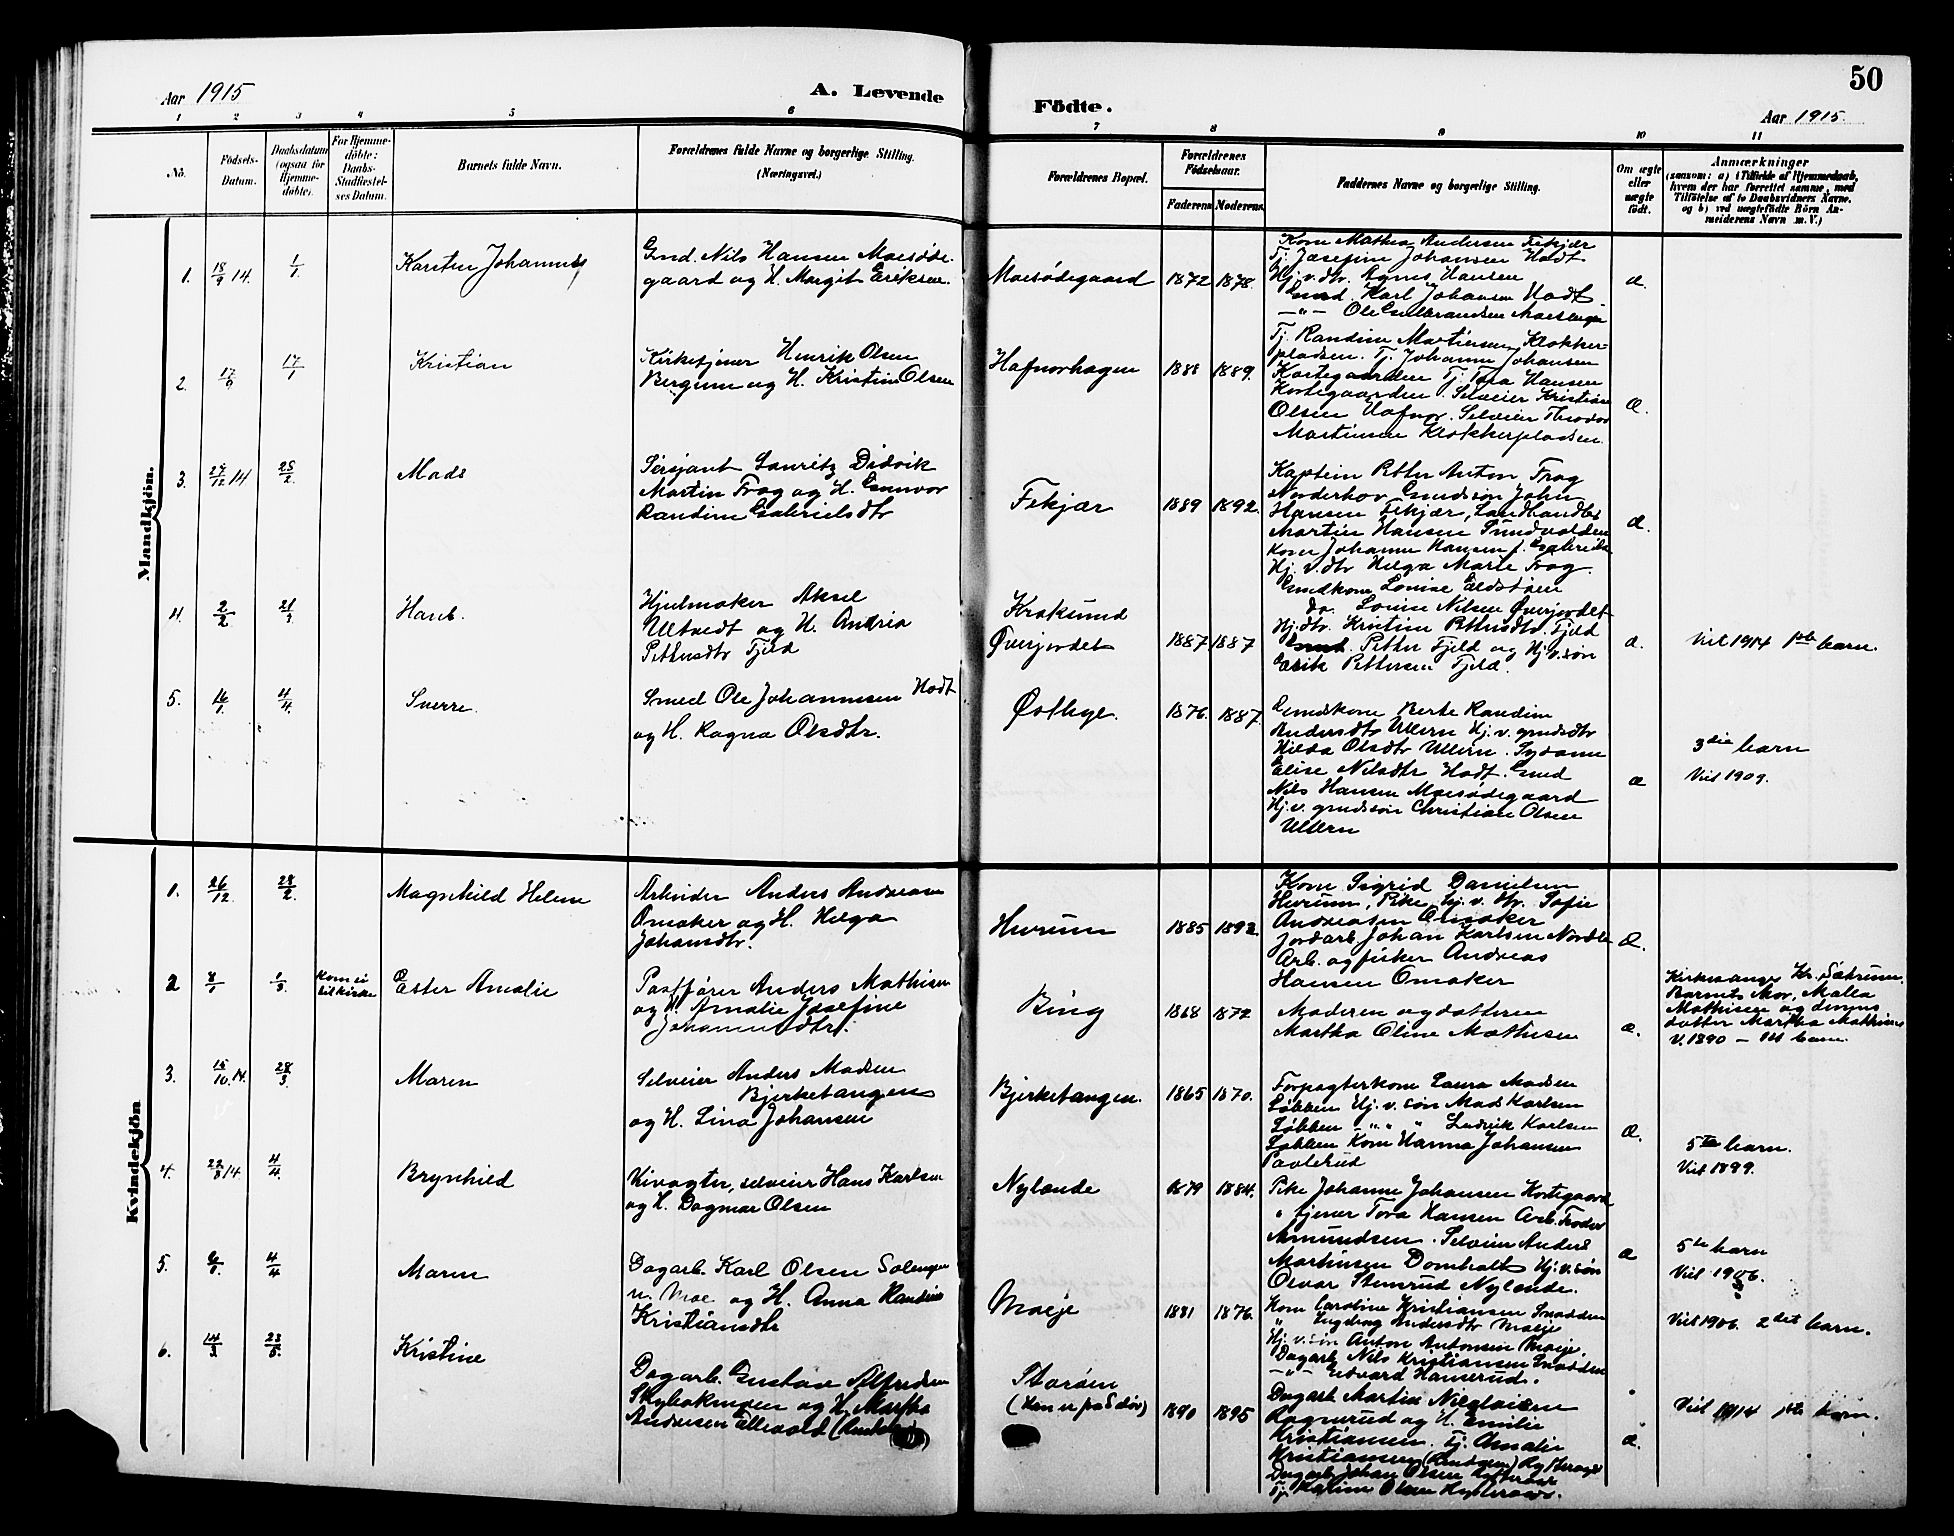 50
Aar 1915
A. Levende
Födte.
Aar 1915.
1 2 3 4 5 6 7 8 9 10 11
No.
Födsels-
Datum.
Daabsdatum
(ogsaa for
Hjemme-
döbte).
For Hjemme-
döbte:
Daabs-
Stadfæstel-
ses Datum.
Barnets fulde Navn.
Forældrenes fulde Navne og borgerlige Stilling.
(Næringsvei.)
Forældrenes Bopæl.
Forældrenes
Födselsaar.
Faderens Moderens
Faddernes Navne og borgerlige Stilling.
Om ægte
eller
uægte
födt.
Anmærkninger
(saasom: a) i Tilfælde af Hjemmedaab,
hvem der har forrettet samme, med
Tilföielse af to Daabsvidners Navne,
og b) ved uægtefödte Börn An-
melderens Navn m. V.)
Mandkjön.
1. 18/9 14 1/1
Karsten Johannes
Gmd. Nils Hansen Moesøde-
gaard og H. Margit Eriksen
Moesødegaard 1872 1878.
Kone Mathea Andersen Fekjær
Tj. Josefine Johansen Hodt
Hj. v. dtr. Agnes Hansen
Gmd. Karl Johansen Hodt
æ.
2. 17/1
Kristian
Kirketjener Henrik Olsen
Bergum og H. Kristine Olsen
Hafnorhagen 1888 1889.
Tj. Randine Martinsen Klokker-
pladsen. Tj. Johanne Johansen
Kortegaarden Tj. Tora Hansen
Kortegaarden. Selveier Kristian
Olsen Hafnor. Selveier Theodor
Martinsen Klokkerpladsen.
Æ.
3. 27/12 14 25/2
Mads
Sersjant Lauritz Didrik
Martin Frog og H. Gunvor
Randine Gabrielsdtr
Fekjær 1889 1892.
Kaptein Petter Anton Frog
Norderhov Gmdsøn John
Hansen Fekjær, Landhandler
Martin Hansen Sundvolden
Kone Johanne Hansen f.
Hj. v. dtr Helga Marie Frog.
æ.
4. 2/2 21/3
Hans.
Hjulmaker Aksel
Ultvedt og H. Andrea
Pettersdtr Fjeld
Kroksund
Øverjordet 1887 1887
Gmdkone Louise Eldstøen
do. Louise Nilsen Øverjordet
Hj. dtr. Kristine Pettersdtr. Fjeld
Gmd. Petter Fjeld og Hj. v. søn
Erik Pettersen Fjeld.
æ.
Viet 1914 1ste barn.
5. 16/1 4/4
Sverre.
Smed Ole Johannesen Hodt
og H. Ragna Olsdtr.
Østbye. 1876. 1887.
Gmdskone Berte Randine
Andersdtr Ullern Hj. v. gmdsdtr
Hilda Olsdtr Ullern. Sydame
Elise Nilsdtr Hodt. Gmd
Nils Hansen Moesødegaard
Hj. v. gmdssøn Christian Olsen
Ullern
æ
3die barn
Viet 1909.
Kvindekjön
1. 26/12 28/2
Magnhild Helene
Arbeider Anders Andreasen
Omaker og H. Helga
Johansdtr.
Hurum 1885 1892.
Kone Sigrid Danielsen
Hurum, Pike hj. v. dtr. Sofie
Andreasen Omaker
Jordarb. Johan Karlsen
Arb. og fisker Andreas
Hansen Omaker
Æ.
2 8/1 1/3 Kom ei
til kirke
Ester Amalie
Postfører Anders Mathisen
og H. Amalie Josefine
Johannesdtr.
Bing 1868 1872
Moderen og datteren
Martha Oline Mathisen
æ.
Kirkesanger Kr. Sætrum
Barnets Mor, Malla
Mathisen og dennes
datter Martha Mathisen
V. 1890 –
3. 15/10 14 28/3
Maren
Selveier Anders Madsen
Bjerketangen
og H. Lina Johansen
Bjerketangen. 1865 1870.
Forpagterkone Laura Madsen
Løkken Hj. v. søn Mads Karlsen
Løkken – " " " Ludvik Karlsen
Løkken Kone Hanna Johansen
Æ.
5te barn.
Viet 1899.
4. 14 4/4
Brynhild
Veivogter, selveier Hans Karlsen
og H. Dagmar Olsen
Nylænde 1879 1884.
Pike Johanne Johansen Kortegaard
" tjener Tora Hansen Arb.
Amundsen. Selveier Anders
Martinsen Domholt Hj. v. søn
Olvar Stensrud Nylænde.
æ
5te barn
Viet 1906.
5. 4/4
Maren
Dagarb. Karl Olsen
n. Moe og H. Anna Randine
Kristiansdtr
Moeje 1881 1876.
Kone Caroline Kristiansen
" Ingeborg Andersdtr Moeje
Hj. v. søn Anton Antonsen Moeje.
Dagarb. Nils Kristiansen
– " – Edvard Hamserud.
Viet 1906. 2det barn.
6. 14/3 23/5
Kristine
Dagarb. Gustav Alfredsen
og H. Martha
Andresen Ellevold
Storøen
1890 1895
Dagarb Martin Nicolaisen
Rognerud og H. Emilie
Kristiansen. Tj. Amalie
Kristiansen
Dagarb. Johan Olsen
Tj. Karine Olsen
æ.
Viet 1914 1ste barn.